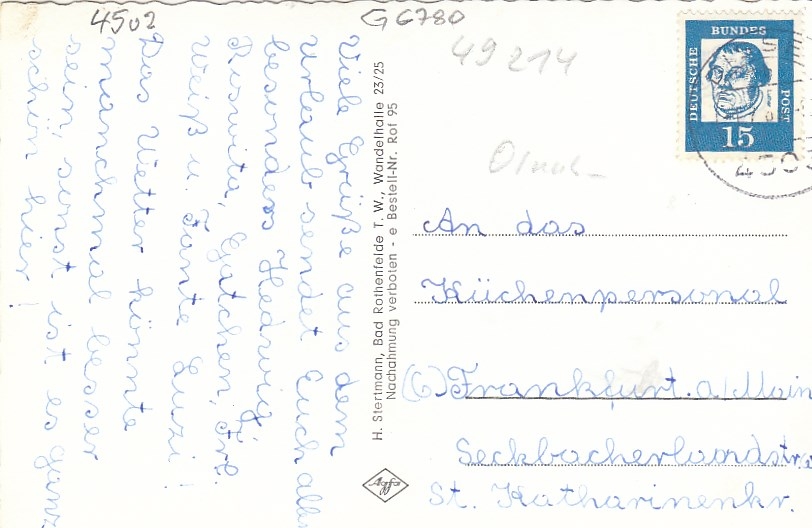 4502
G 6780
49 214
DEUTSCHE
BUNDES
POST
15
450
Viele Grüße aus dem
Urlaub sendet Euch allen
besonders Hedwig,
Roswita, Gatchen, Frl.
Weiß u. Tante Luzi!
Das Wetter könnte
manchmal besser
sein, sonst ist es ganz
schön hier!
H. Stertmann, Bad Rothenfelde T. W., Wandelhalle 23/25
Nachahmung verboten - e Bestell-Nr. Rof 95
Agfa
An das
Küchenpersonal
(6) Frankfurt. a/Main
Seckbacherlandstr.
St. Katharinenkr.